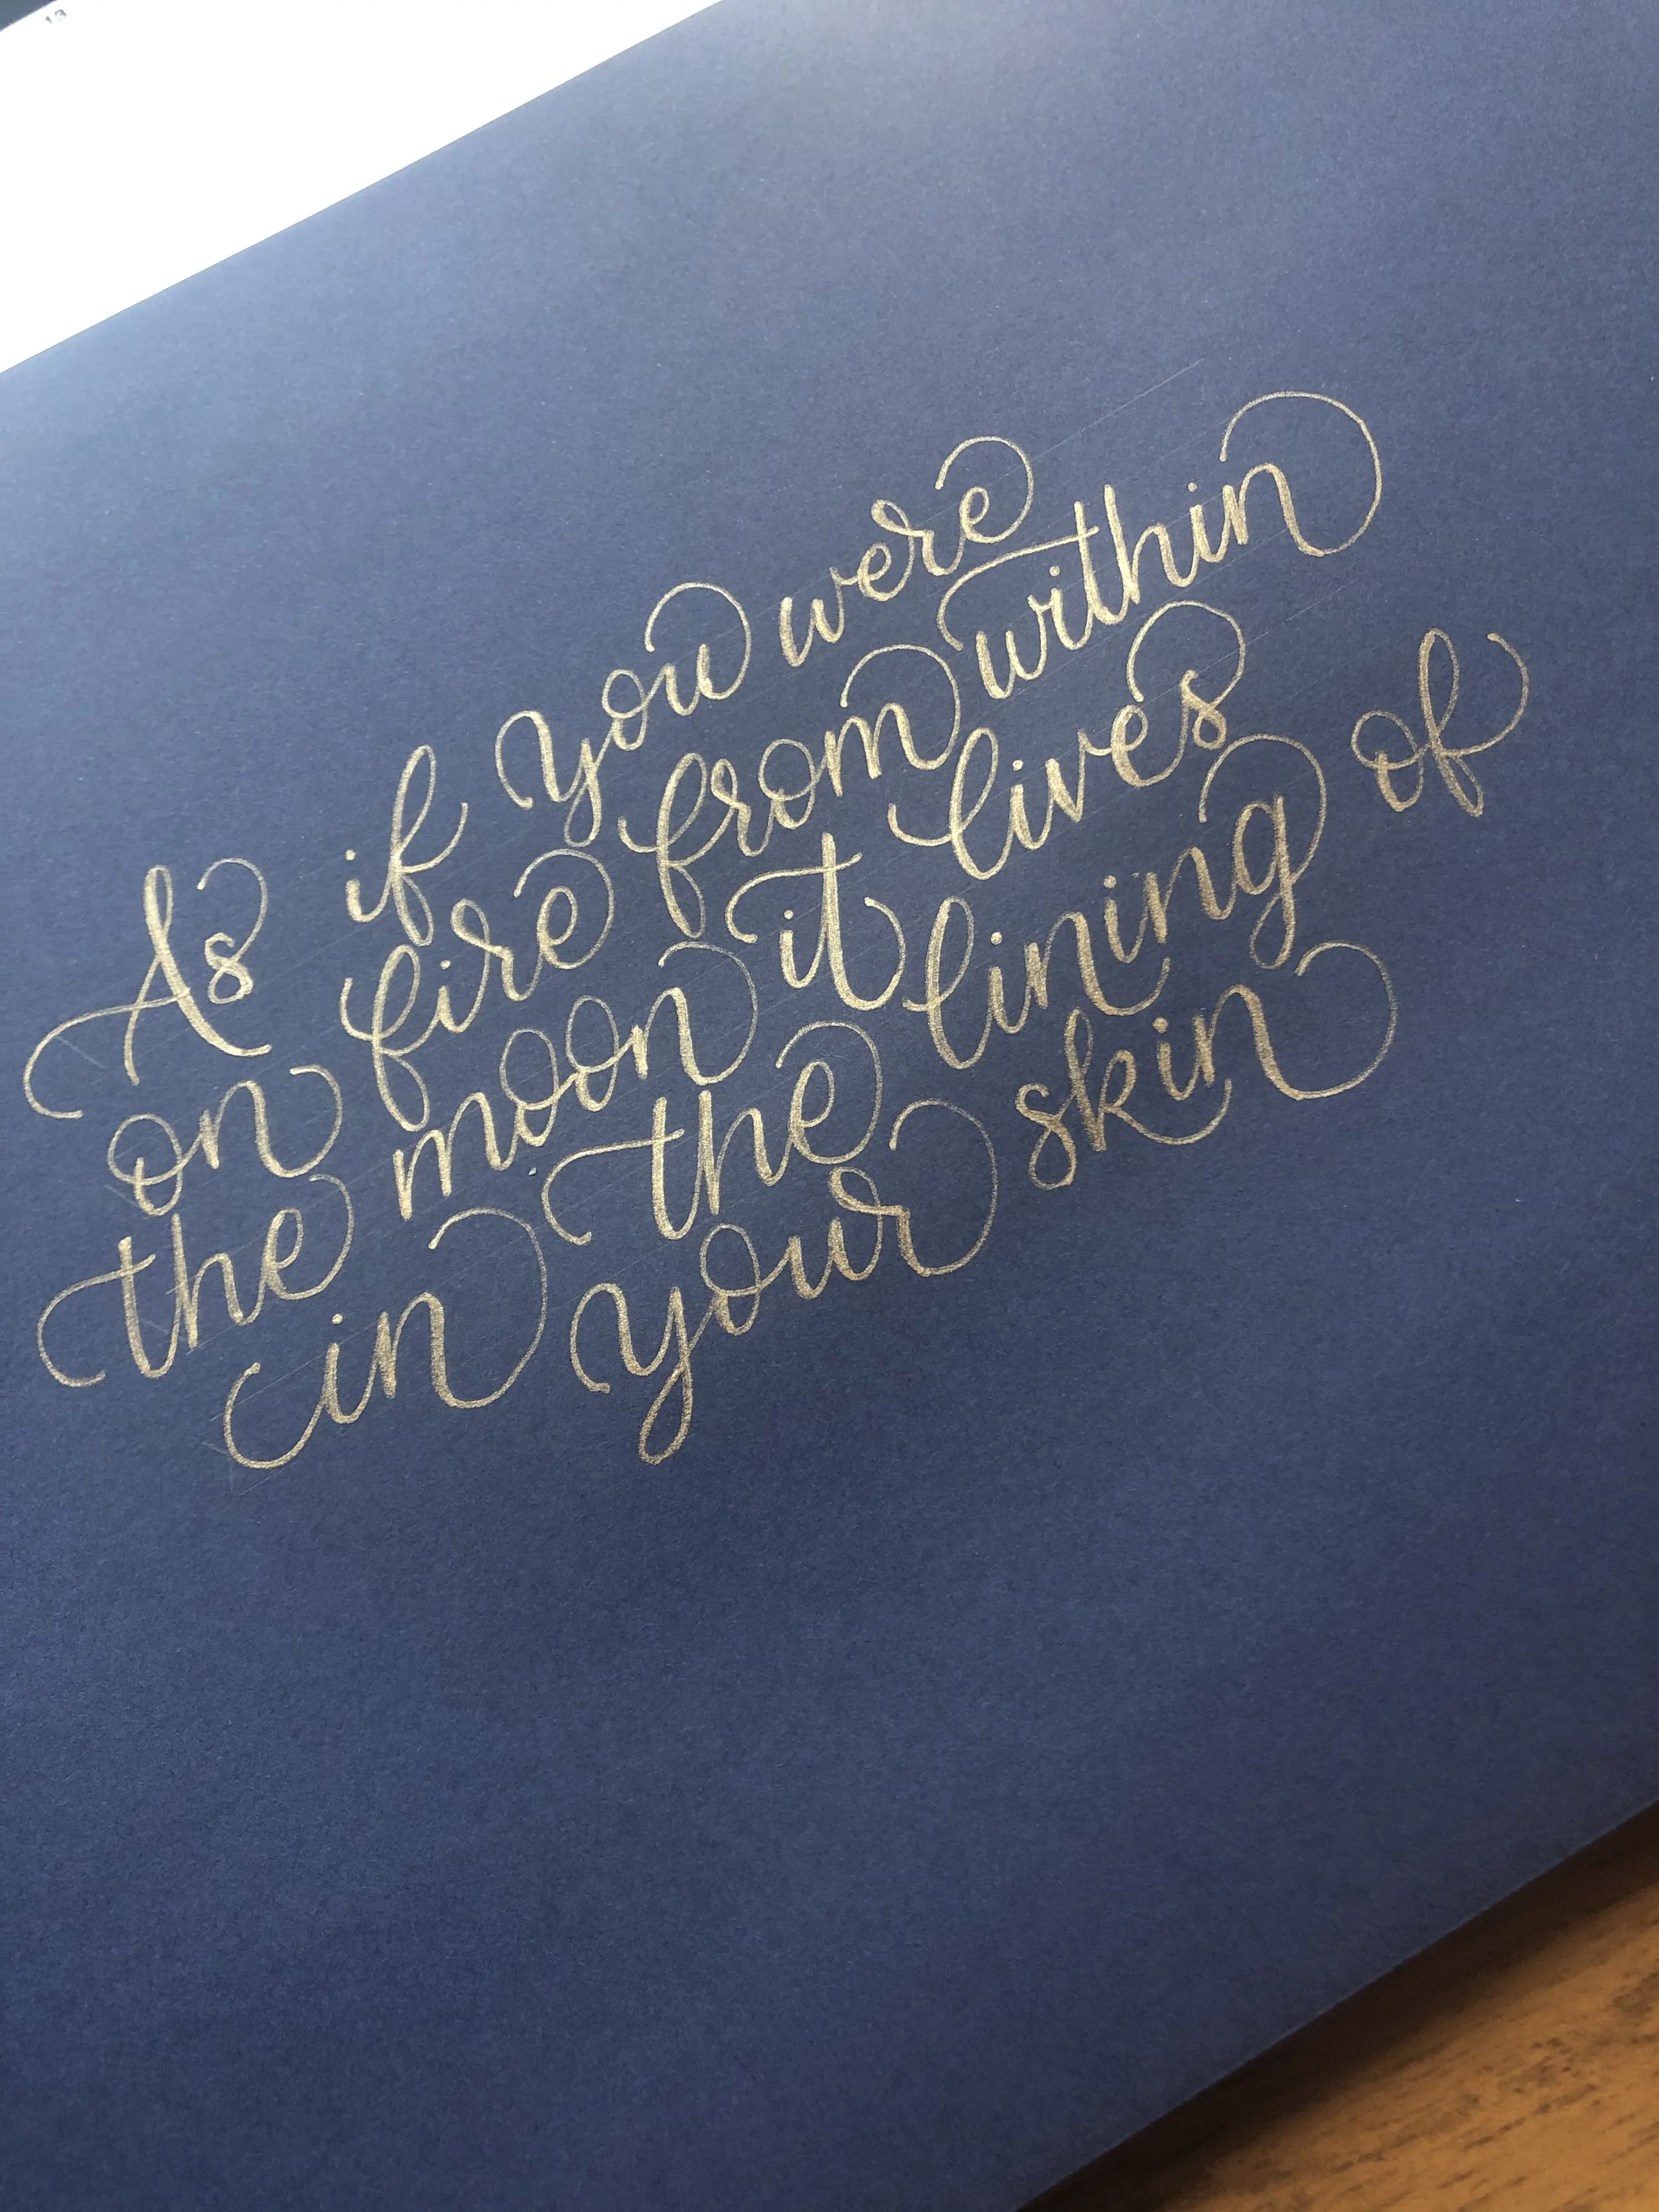 13
As if you were
on fire from within
the moon it lives
in the lining of
your skin